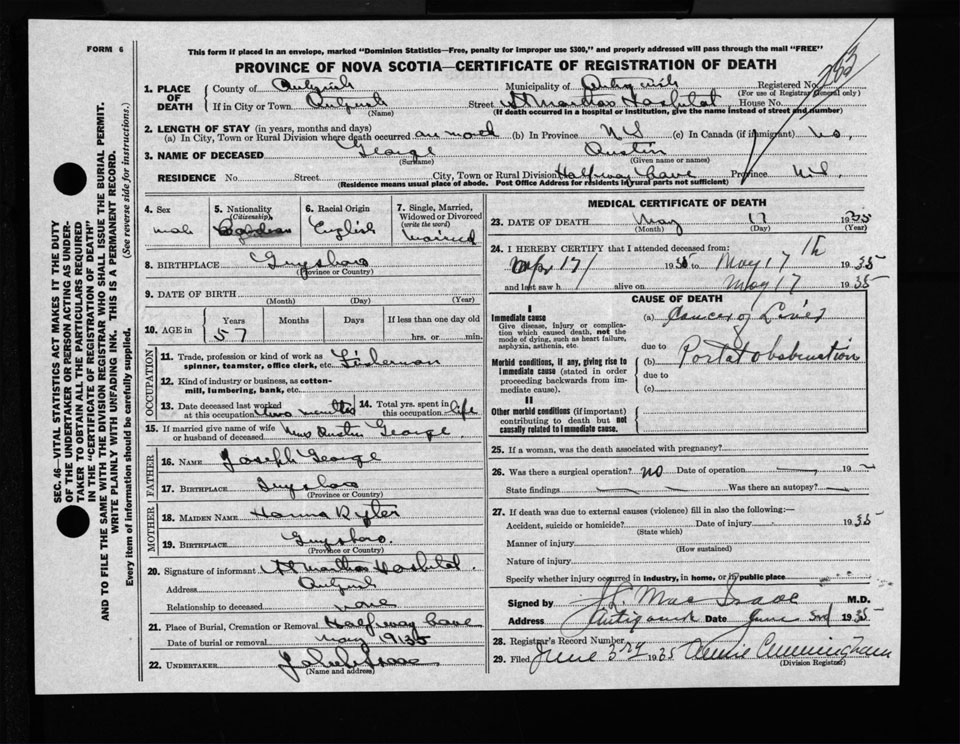 FORM 6
This form if placed in an envelope, marked "Dominion Statistics—Free, penalty for improper use $300," and properly addressed will pass through the mail "FREE"
PROVINCE OF NOVA SCOTIA—CERTIFICATE OF REGISTRATION OF DEATH
SEC. 46—VITAL STATISTICS ACT MAKES IT THE DUTY
OF THE UNDERTAKER OR PERSON ACTING AS UNDER-
TAKER TO OBTAIN ALL THE PARTICULARS REQUIRED
IN THE "CERTIFICATE OF REGISTRATION OF DEATH"
AND TO FILE THE SAME WITH THE DIVISION REGISTRAR WHO SHALL ISSUE THE BURIAL PERMIT.
WRITE PLAINLY WITH UNFADING INK. THIS IS A PERMANENT RECORD.
Every item of information should be carefully supplied. (See reverse side for instructions.)
1. PLACE OF DEATH County of Municipality of Registered No. 253
(For use of Registrar General only)
If in City or Town Street St Marthas Hospital House No.
(Name) (If death occurred in a hospital or institution, give the name instead of street and number)
2. LENGTH OF STAY (in years, months and days)
(a) In City, Town or Rural Division where death occurred (b) In Province NS (c) In Canada (if immigrant) No.
3. NAME OF DECEASED George Austin
(Surname) (Given name or names)
RESIDENCE No. Street City, Town or Rural Division Halfway Cove Province N.S.
(Residence means usual place of abode. Post Office Address for residents in rural parts not sufficient)
4. Sex male
5. Nationality (Citizenship)
6. Racial Origin English
7. Single, Married, Widowed or Divorced (write the word) married
8. BIRTHPLACE Guysboro
(Province or Country)
9. DATE OF BIRTH
(Month) (Day) (Year)
10. AGE in Years Months Days If less than one day old
57 hrs. or min.
OCCUPATION
11. Trade, profession or kind of work as spinner, teamster, office clerk, etc. Fisherman
12. Kind of industry or business, as cotton-mill, lumbering, bank, etc.
13. Date deceased last worked at this occupation two months
14. Total yrs. spent in this occupation life
15. If married give name of wife or husband of deceased Mrs Austin George
FATHER
16. NAME Joseph George
17. BIRTHPLACE Guysboro
(Province or Country)
MOTHER
18. MAIDEN NAME Hanna
19. BIRTHPLACE Guysboro.
(Province or Country)
20. Signature of informant St Marthas Hospital.
Address
Relationship to deceased none
21. Place of Burial, Cremation or Removal Halfway Cove
Date of burial or removal May 1935
22. UNDERTAKER
(Name and address)
MEDICAL CERTIFICATE OF DEATH
23. DATE OF DEATH May 17 1935
(Month) (Day) (Year)
24. I HEREBY CERTIFY that I attended deceased from:
17/ 1935 to May 17th 1935
and last saw h alive on May 17 1935
CAUSE OF DEATH
I
Immediate cause
Give disease, injury or complication which caused death, not the mode of dying, such as heart failure, asphyxia, asthenia, etc.
(a) Cancer of Liver
due to
Morbid conditions, if any, giving rise to immediate cause (stated in order proceeding backwards from immediate cause).
(b) Portal obstruction
due to
(c)
II
Other morbid conditions (if important) contributing to death but not causally related to immediate cause.
25. If a woman, was the death associated with pregnancy?
26. Was there a surgical operation? no Date of operation 19
State findings Was there an autopsy?
27. If death was due to external causes (violence) fill in also the following:—
Accident, suicide or homicide? Date of injury 1935
(State which)
Manner of injury
(How sustained)
Nature of injury
Specify whether injury occurred in industry, in home, or in public place
Signed by MacIsaac M.D.
Address Antigonish Date June 3rd 1935
28. Registrar's Record Number
29. Filed June 3rd 1935 Annie Cunningham
(Division Registrar)